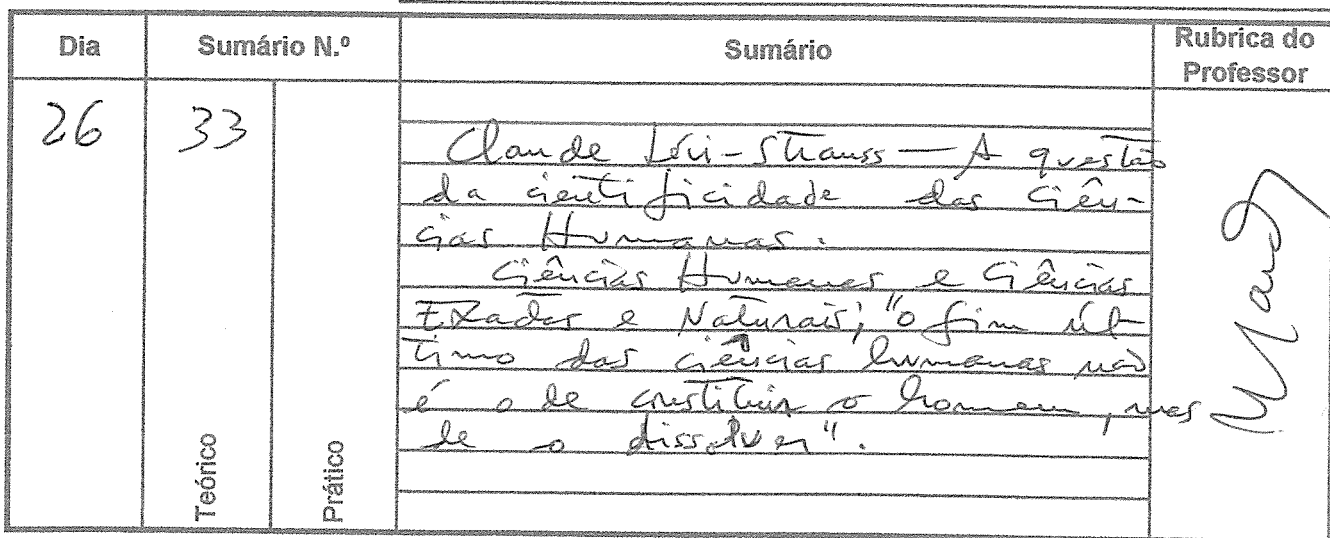 Dia Sumário N.º Sumário Rubrica do
Professor
26 33
Claude Lévi-Strauss — A questão
da cientificidade das Ciên-
cias Humanas.
Ciências Humanas e Ciências
Exactas e Naturais; "o fim úl-
timo das ciências humanas não
é o de constituir o homem, mas
de o dissolver".
Teórico
Prático